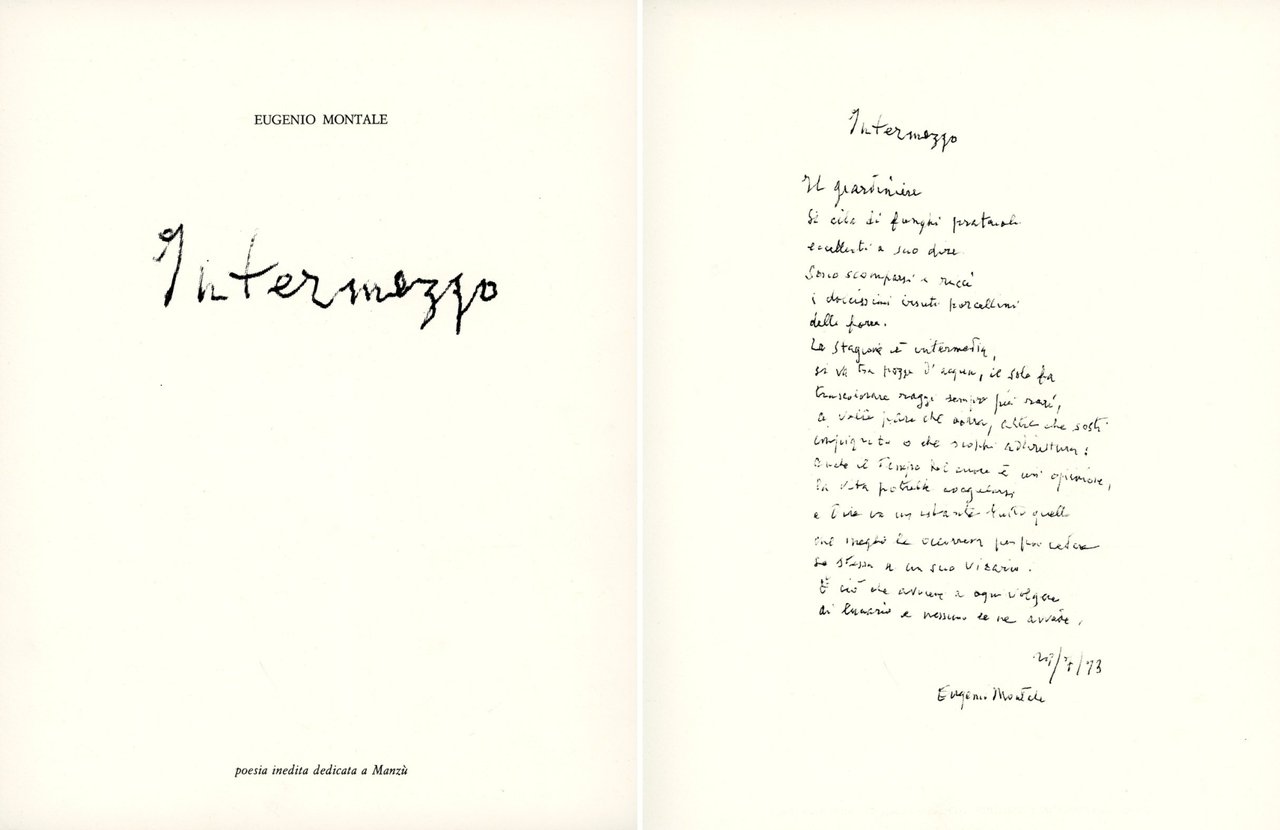 EUGENIO MONTALE
Intermezzo
poesia inedita dedicata a Manzù
Intermezzo
Il giardiniere
si ciba di funghi prataioli
eccellenti a suo dire
Sono scomparsi i ricci
i dolcissimi irsuti porcellini
delle forre.
La stagione è intermedia,
si va tra pozze d'acqua, il sole fa
trascolorare raggi sempre più rari,
a volte pare che corra, altre che sosti
impigrito o che scoppi addirittura;
anche il tempo del cuore è un' opinione,
la vita potrebbe coagularsi
e dire in un istante tutto quello
che meglio le occorreva per poi cedere
se stessa a un suo vicario.
È ciò che avviene a ogni volgere
di lunario e nessuno se ne avvede.
Eugenio Montale